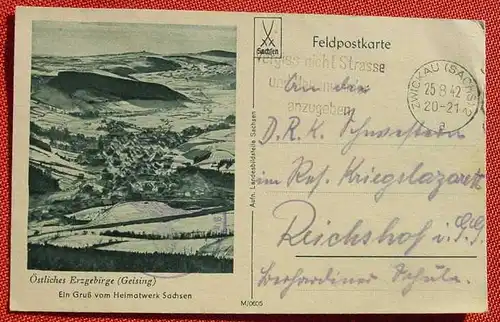 Sachsen
Feldpostkarte
Vergiss nicht Strasse
und
anzugeben
ZWICKAU (SACHS) 2
25.8.42
20-21
a
An die
D.R.K. Schwestern
im Res. Kriegslazarett
Reichshof i. G.G.
Bernhardiner Schule.
Aufn. Landesbildstelle Sachsen
Östliches Erzgebirge (Geising)
Ein Gruß vom Heimatwerk Sachsen
M/0605